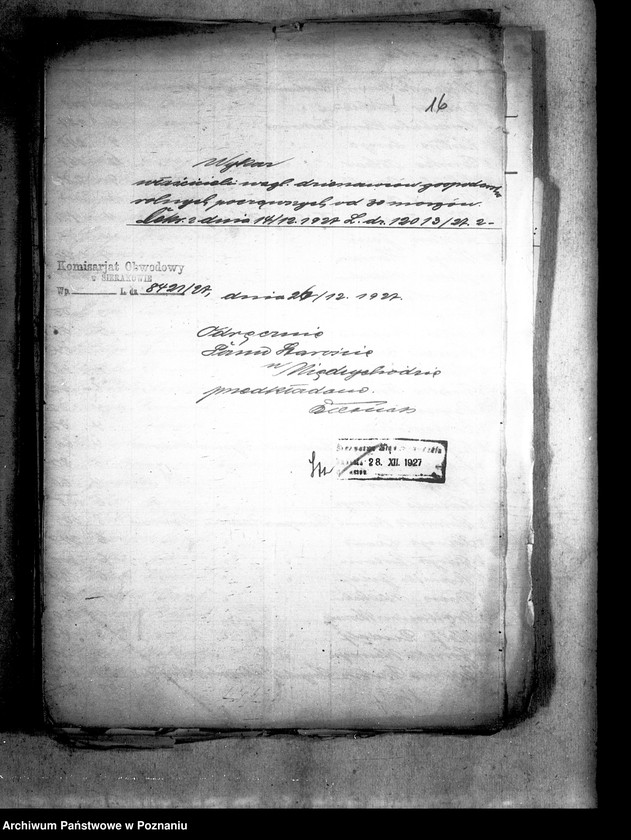 16
Wykaz
właścicieli wzgl. dzierżawców gospodarstw
rolnych począwszy od 30 morgów.
dnia 14/12. 1927 L. dz. 12013/27. 2-
Komisarjat Obwodowy
w SIERAKOWIE
Wp. L. dz. 8421/27, dnia 24/12. 1927.
Odręcznie
Panu Staroście
w Międzychodzie
przedkładam.
28. XII. 1927
Archiwum Państwowe w Poznaniu